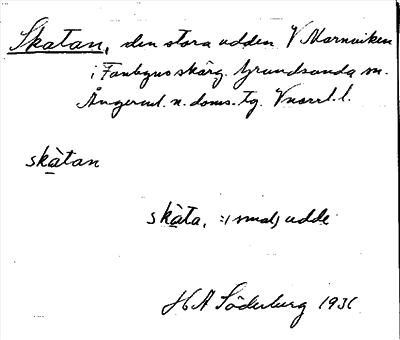 Skatan, den stora udden V Marnviken
i Fanbyns skärg. Grundsunda sn.
Ångerml. n. doms. tg. Vnorrl. l.
skàtan
skàta, :( smal) udde
H A Söderberg 1931